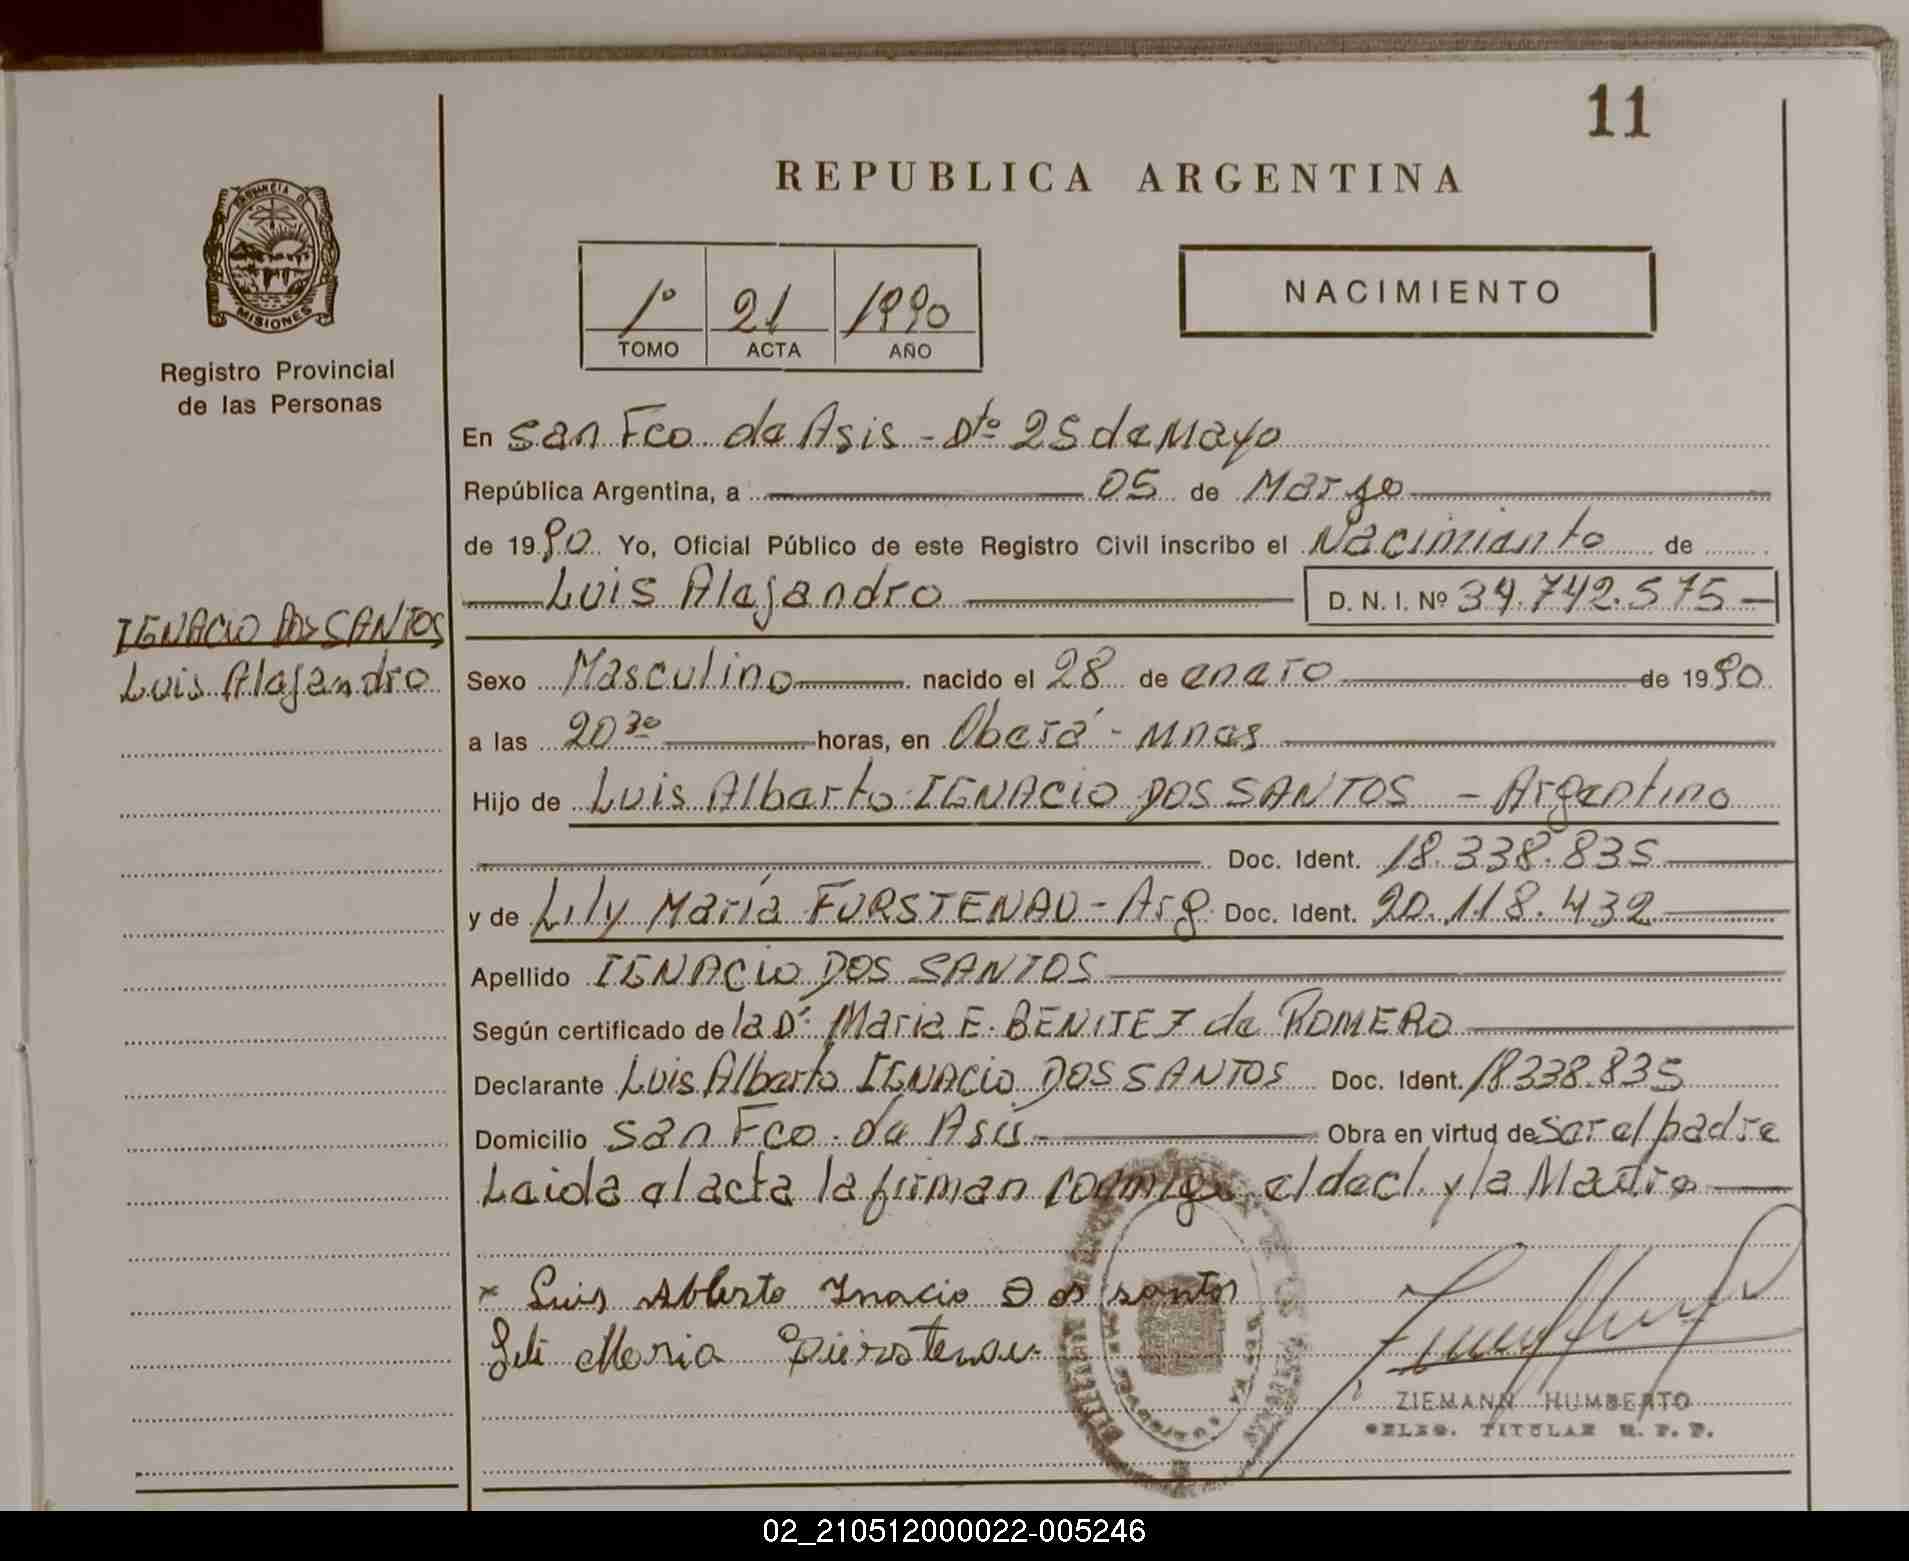 11
REPUBLICA ARGENTINA
PROVINCIA DE
MISIONES
Registro Provincial
de las Personas
1º 21 1990
TOMO ACTA AÑO
NACIMIENTO
En San Fco de Asis - Dto 25 de Mayo
República Argentina, a 05 de Marzo
de 1990 Yo, Oficial Público de este Registro Civil inscribo el Nacimiento de
Luis Alejandro D. N. I. Nº 34.742.575
IGNACIO DOS SANTOS
Luis Alejandro
Sexo Masculino nacido el 28 de enero de 1990
a las 20 30 horas, en Oberá - Mnes
Hijo de Luis Alberto IGNACIO DOS SANTOS - Argentino
Doc. Ident. 18.338.835
y de Lily María FURSTENAU - Arg Doc. Ident. 20.118.432
Apellido IGNACIO DOS SANTOS
Según certificado de la Dª Maria E. BENITEZ de ROMERO
Declarante Luis Alberto IGNACIO DOS SANTOS Doc. Ident. 18338.835
Domicilio San Fco. de Asis - Obra en virtud de ser el padre
Leida el acta la firman conmigo el decl. y la Madre
x Luis Alberto Ignacio Dos santos
Lili Maria
ZIEMANN HUMBERTO
DELEG. TITULAR R. P. P.
02_210512000022-005246